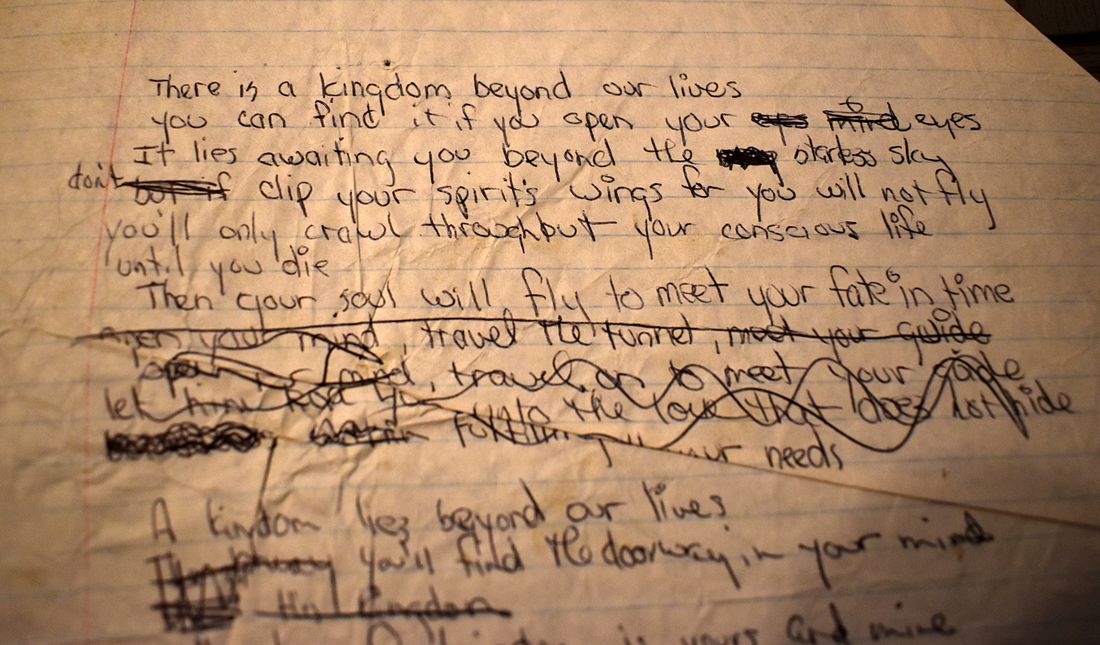 There is a kingdom beyond our lives
you can find it if you open your eyes mind eyes
It lies awaiting you beyond the starless sky
don't but if clip your spirit's wings for you will not fly
you'll only crawl throughout your conscious life
until you die
Then your soul will fly to meet your fate in time
open your mind, travel the tunnel, meet your guide
open your mind, travel on to meet your guide
let him lead you unto the love that does not hide
your needs
A kingdom lies beyond our lives
you'll find the doorway in your mind
the kingdom
is yours and mine